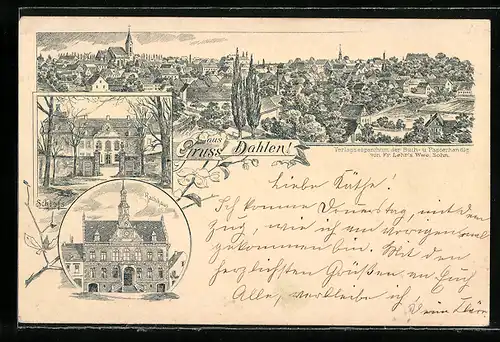 Gruss aus Dahlen!
Verlagseigenthum der Buch- u. Papierhandlg.
von Fr. Lehr's Wwe. Sohn.
Schloss
Rathhaus
Liebe Käthe!
Ich komme Donnerstag, mit dem
Zug, wie ich am vorigenmal
gekommen bin. Mit den
herzlichsten Grüßen an Euch
Alle, verbleibe ich
Deine